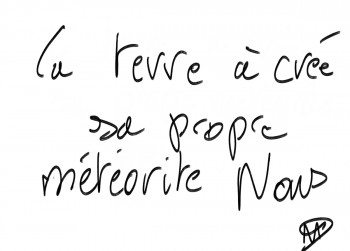 la terre à créé
sa propre
météorite Nous